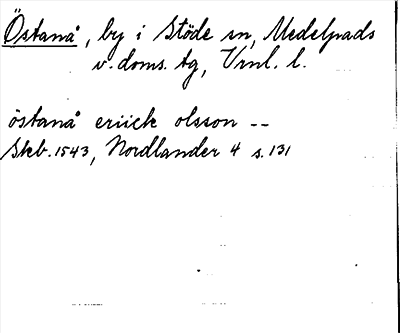 Östanå, by i Stöde sn, Medelpads
v. doms. tg, Vrnl. l.
östanå eriick olsson --
Skb. 1543, Nordlander 4 s. 131